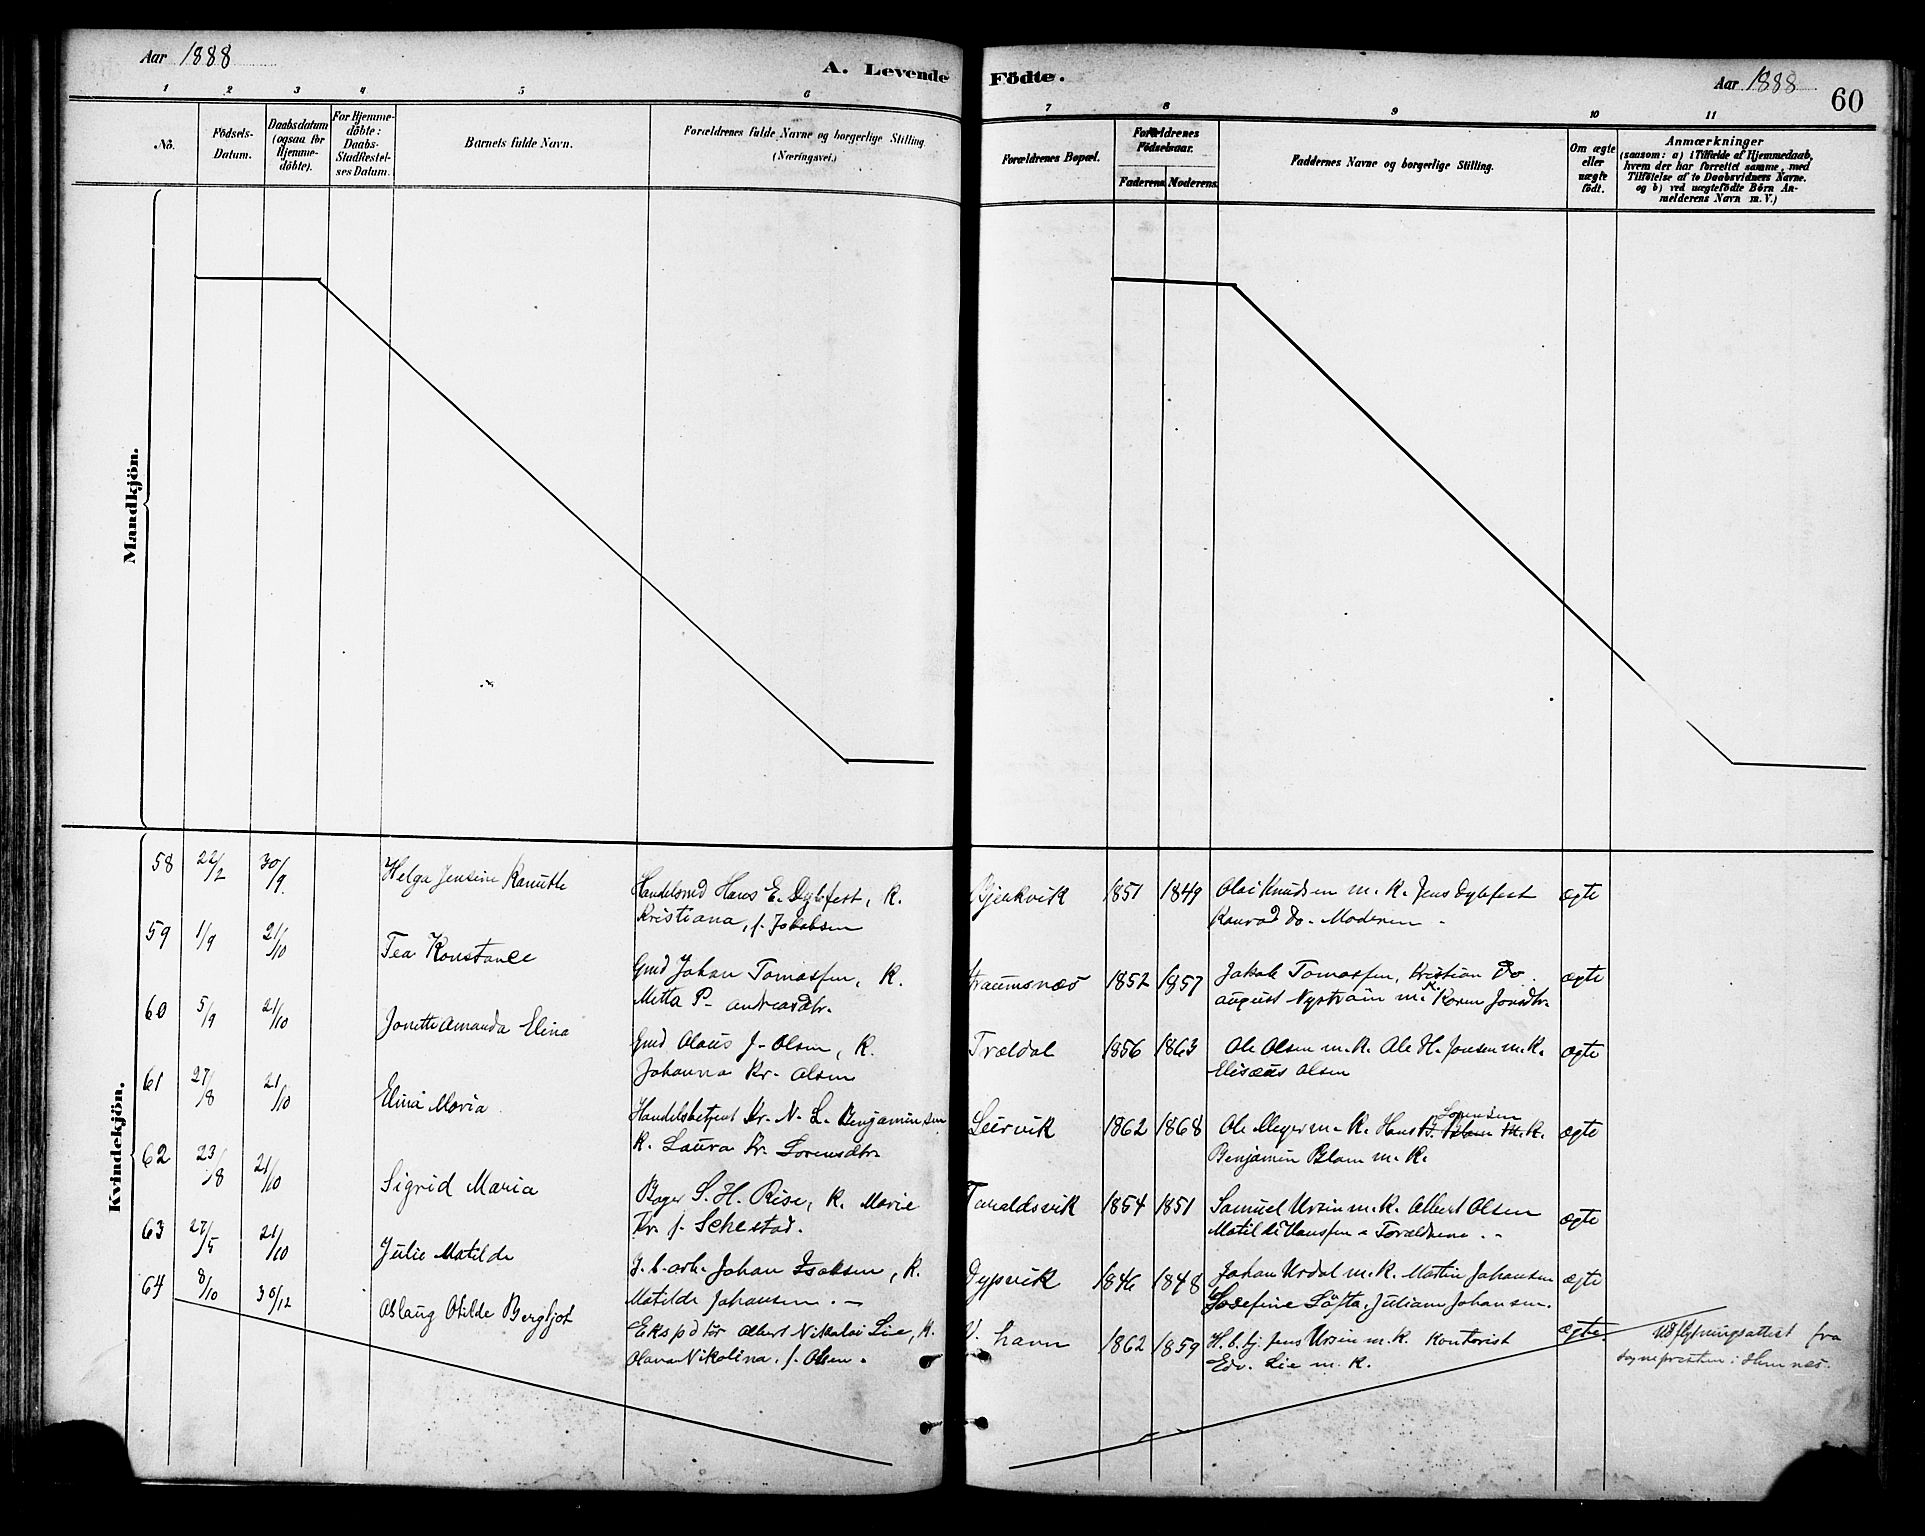 Aar 1888
A. Levende Födte.
Aar 1888
60
1 2 3 4 5 6 7 8 9 10 11
No.
Födsels-
Datum.
Daabsdatum
(ogsaa for
Hjemme-
döbte).
For Hjemme-
döbte:
Daabs-
Stadfestel-
ses Datum.
Barnets fulde Navn.
Forældrenes fulde Navne og borgerlige Stilling.
(Næringsvei.)
Forældrenes Bopæl.
Forældrenes
Födselsaar.
Faderens. Moderens.
Faddernes Navne og borgerlige Stilling.
Om ægte
eller
uægte
födt.
Anmærkninger
(saasom: a) i Tilfælde af Hjemmedaab,
hvem der har forrettet samme, med
Tilföielse af to Daabsvidners Navne.
og b) ved uægtefödte Börn An-
melderens Navn m. V.)
Mandkjön.
Kvindekjön.
58 22/2 30/9. Helga Jensine
Handelsmd Hans E. Dybfest, K.
Kristiana, f. Jakobsen
Bjerkvik 1851 1849
Olai Knudsen m. K. Jens Dybfest
Konrad do. Moderen -
ægte
59 1/9 21/10 Tea Konstance
Gmd Johan Tomassen, K.
Metta P- Andreasdtr.
Straumsnæs 1852 1857
Jakob Tomassen, Kristian do.
August Nyström m. K. Karen Jonsdtr.
ægte
60 5/9 21/10 Jonette Amanda Elina
Gmd Olaus J- Olsen, K.
Johanna Kr- Olsen
Trældal 1856 1863
Ole Olsen m. K. Ole H. Jensen m. K.
Elisæus Olsen
ægte
61 27/8 21/10 Elina Maria
Handelsbetjent Kr. N- L. Benjaminsen
K. Laura Kr. Sorensdtr.
Leirvik 1862 1868
Ole Meyer m. K. Hans Sorensen m. K.
Benjamin Blom m. K.
ægte
62 23/8 21/10 Sigrid Maria
Bager S. H. Rise, K. Marie
Kr. f. Schestad.
Taraldsvik 1854 1851
Samuel Ursin m. K. Albert Olsen
Matilde Hanssen - Forældrene. -
ægte
63 27/5 21/10 Julie Matilde
J. b. arb. Johan Isaksen, K.
Matilde Johansen. -
Dypvik 1846 1848
Johan Urdal m. K. Martin Johansen
Josefine Löfta, Juliane Johansen.
ægte
64 8/10 30/12 Aslaug Otilde Bergljot
Ekspditör Albert Nikolai Lie, K.
Olava Nikolina, f. Olsen.
V. havn 1862 1859
H. b. bj. Jens Ursin m. K. Kontorist
Edv. Lie m. K.
ægte
Udflytningsattest fra
sognepresten i Hemnes.